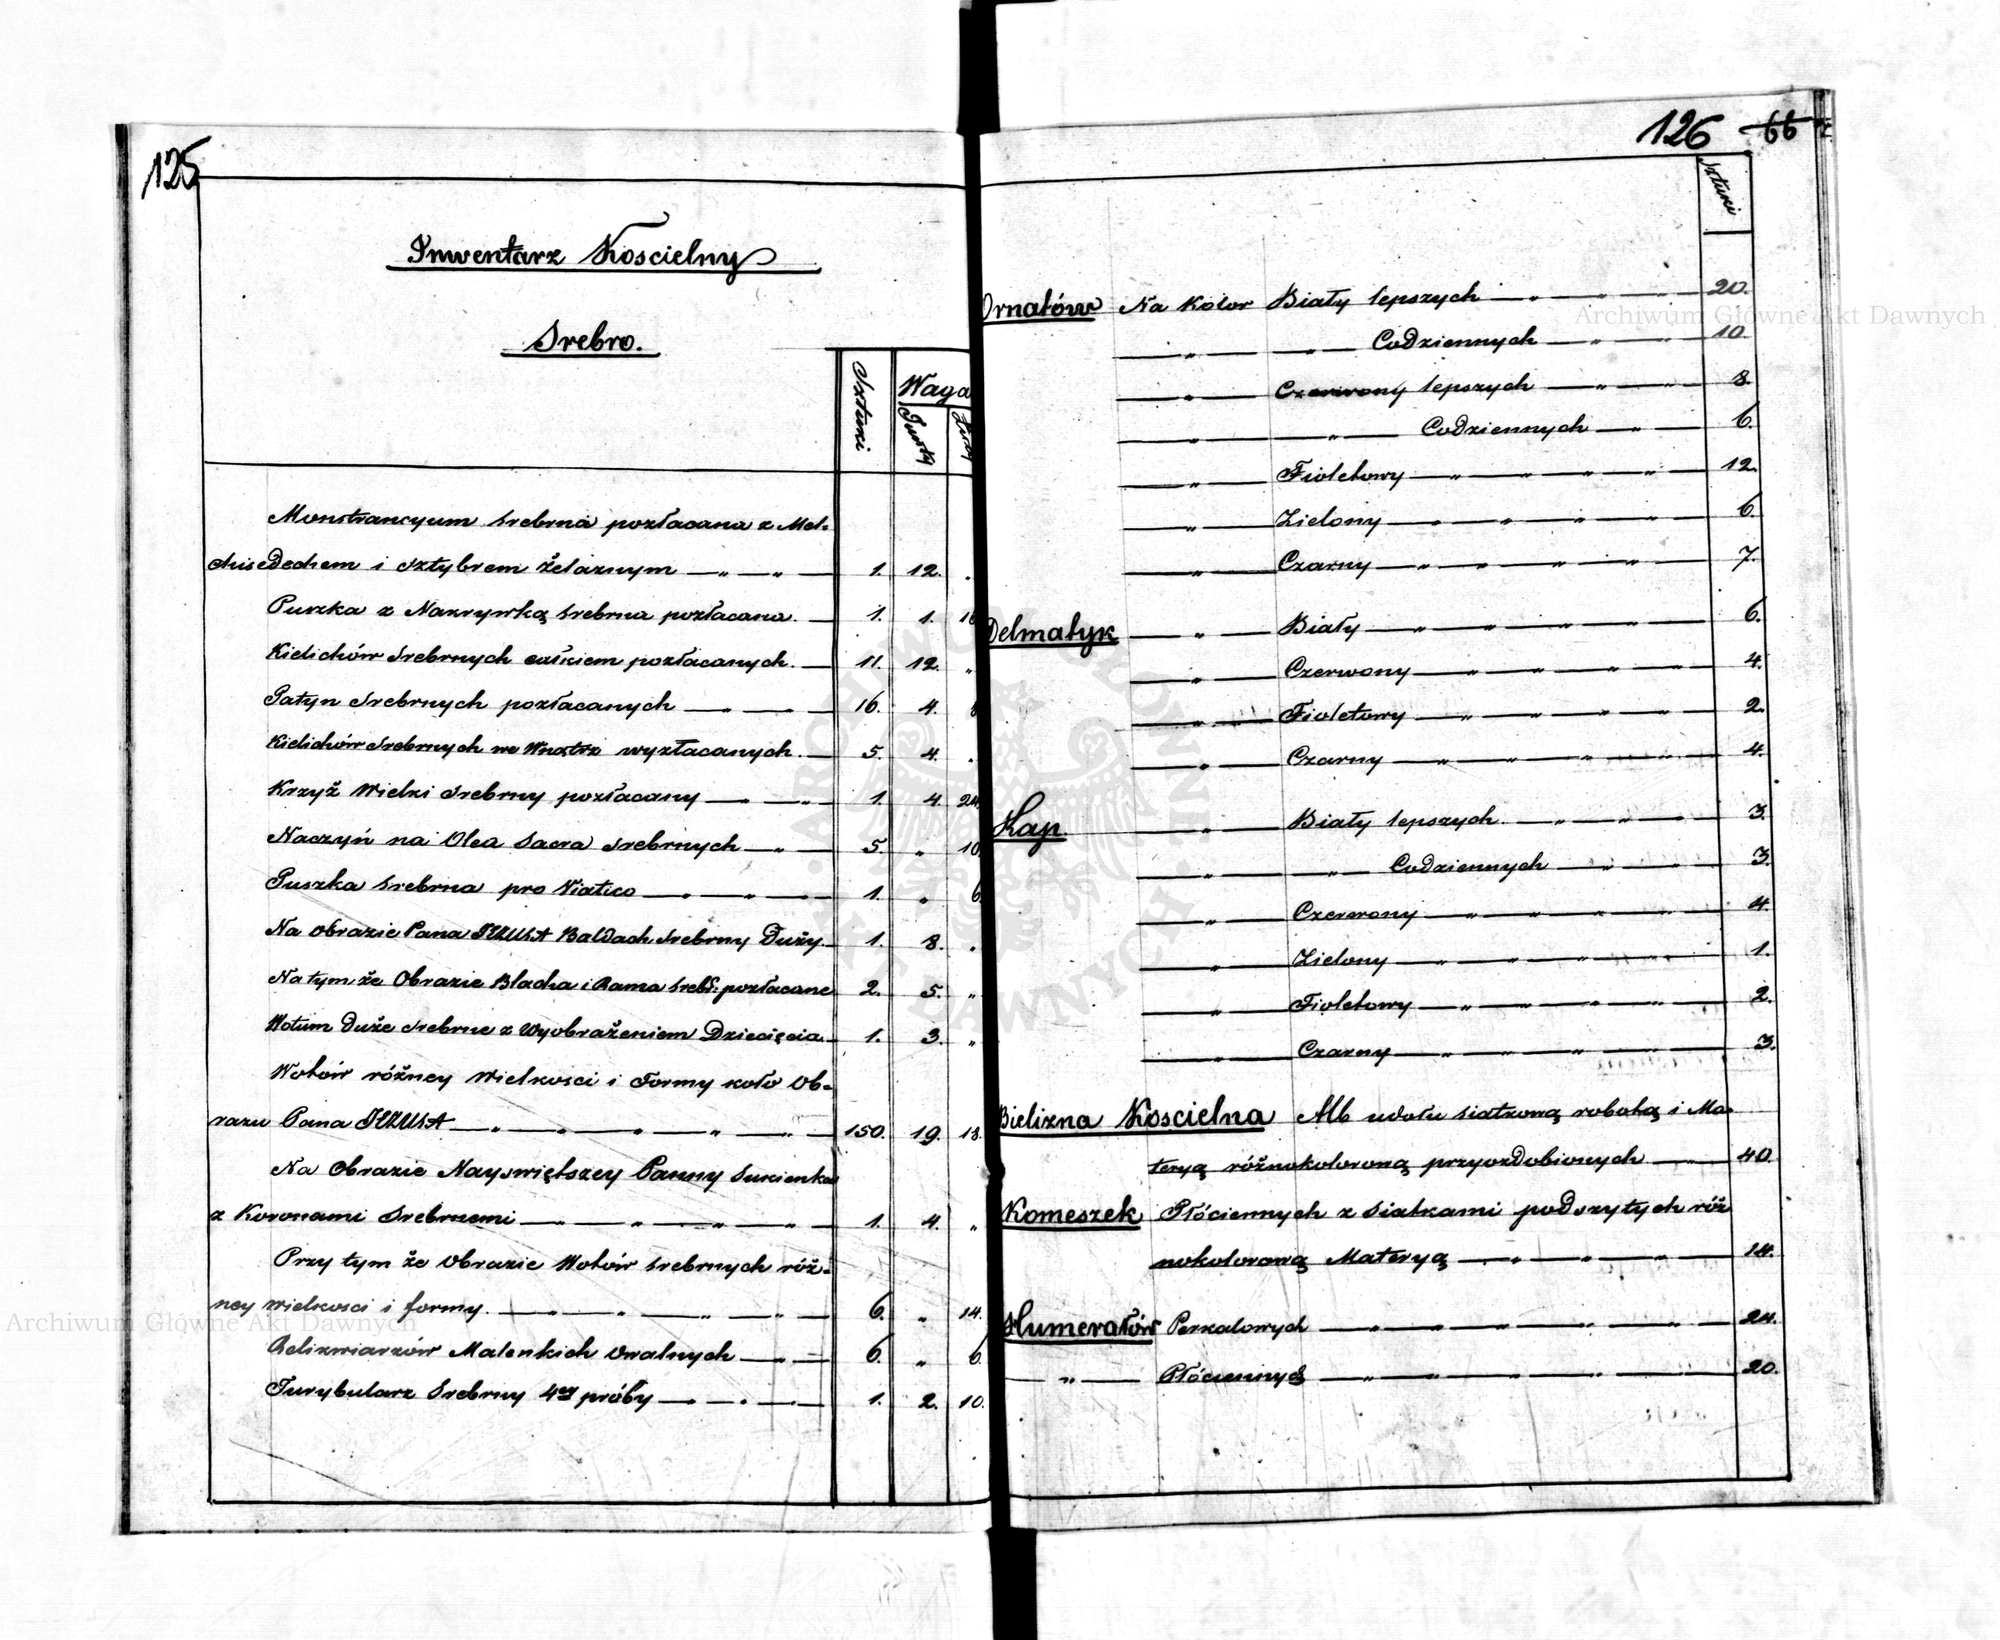 125
Inwentarz Koscielny
Srebro.
Sztuki Waga
Funty Łuty
Monstrancyum srebrna pozłacana z Mel-
chisedechem i sztybrem żelaznym — „ — „ — 1. 12. „
Puszka z Nakrywką srebrna pozłacana. — 1. 1. 16
Kielichów srebrnych całkiem pozłacanych. — 11. 12. „
Patyn srebrnych pozłacanych — „ — „ — 16. 4.
Kielichów srebrnych we Wnątrz wyzłacanych. — 5. 4. „
Krzyż Wielki srebrny pozłacany — „ — „ — 1. 4. 24
Naczyń na Olea Sacra srebrnych — „ — 5. „ 10
Puszka srebrna pro Viatico — „ — „ — „ — 1. „ 6
Na obrazie Pana JEZUSA Baldach srebrny Duży — 1. 8. „
Na tym że Obrazie Blacha i Rama srebr: pozłacane 2. 5. „
Wotum Duże srebrne z Wyobrażeniem Dziecięcia. — 1. 3. „
Wotów różney Wielkosci i Formy koło Ob-
razu Pana JEZUSA — „ — „ — „ — „ — „ — 150. 19. 18.
Na Obrazie Nayswiętszey Panny Sukienka
z Koronami Srebrnemi — „ — „ — „ — „ — 1. 4. „
Przy tym że Obrazie Wotów srebrnych róż-
ney wielkosci i formy. — „ — „ — „ — „ — 6. „ 14.
Relikwiarzów Maleńkich Owalnych — „ — 6. „ 6.
Turybularz Srebrny 4ey próby — „ — „ — 1. 2. 10.
126 66
Sztuki
Ornatów Na Kolor Biały lepszych — „ — „ — „ — 20.
— „ — — „ — Codziennych — „ — „ — 10.
— „ — Czerwony lepszych — „ — „ — 8.
— „ — — „ — Codziennych — „ — 6.
— „ — Fioletowy — „ — „ — „ — „ — 12.
— „ — Zielony — „ — „ — „ — „ — 6.
— „ — Czarny — „ — „ — „ — „ — 7.
Delmatyk — „ — Biały — „ — „ — „ — „ — 6.
— „ — Czerwony — „ — „ — „ — „ — 4.
— „ — Fioletowy — „ — „ — „ — „ — 2.
— „ — Czarny — „ — „ — „ — „ — 4.
Kap. — „ — Biały lepszych. — „ — „ — 3.
— „ — — „ — Codziennych — „ — „ — 3.
— „ — Czerwony — „ — „ — „ — „ — 4.
— „ — Zielony — „ — „ — „ — „ — 1.
— „ — Fioletowy — „ — „ — „ — „ — 2.
— „ — Czarny — „ — „ — „ — „ — 3.
Bielizna Koscielna Alb udołu siatkową robotą i Ma-
teryą różnokolorową przyozdobionych — „ — 40.
Komeszek Płóciennych z siatkami podszytych róż
nokolorową Materyą — „ — „ — „ — 14.
Humerałów Perkalowych — „ — „ — „ — „ — „ — 24.
— „ — Płóciennych — „ — „ — „ — „ — „ — 20.
Archiwum Główne Akt Dawnych
Archiwum Główne Akt Dawnych
ARCHIWUM GŁÓWNE AKT DAWNYCH